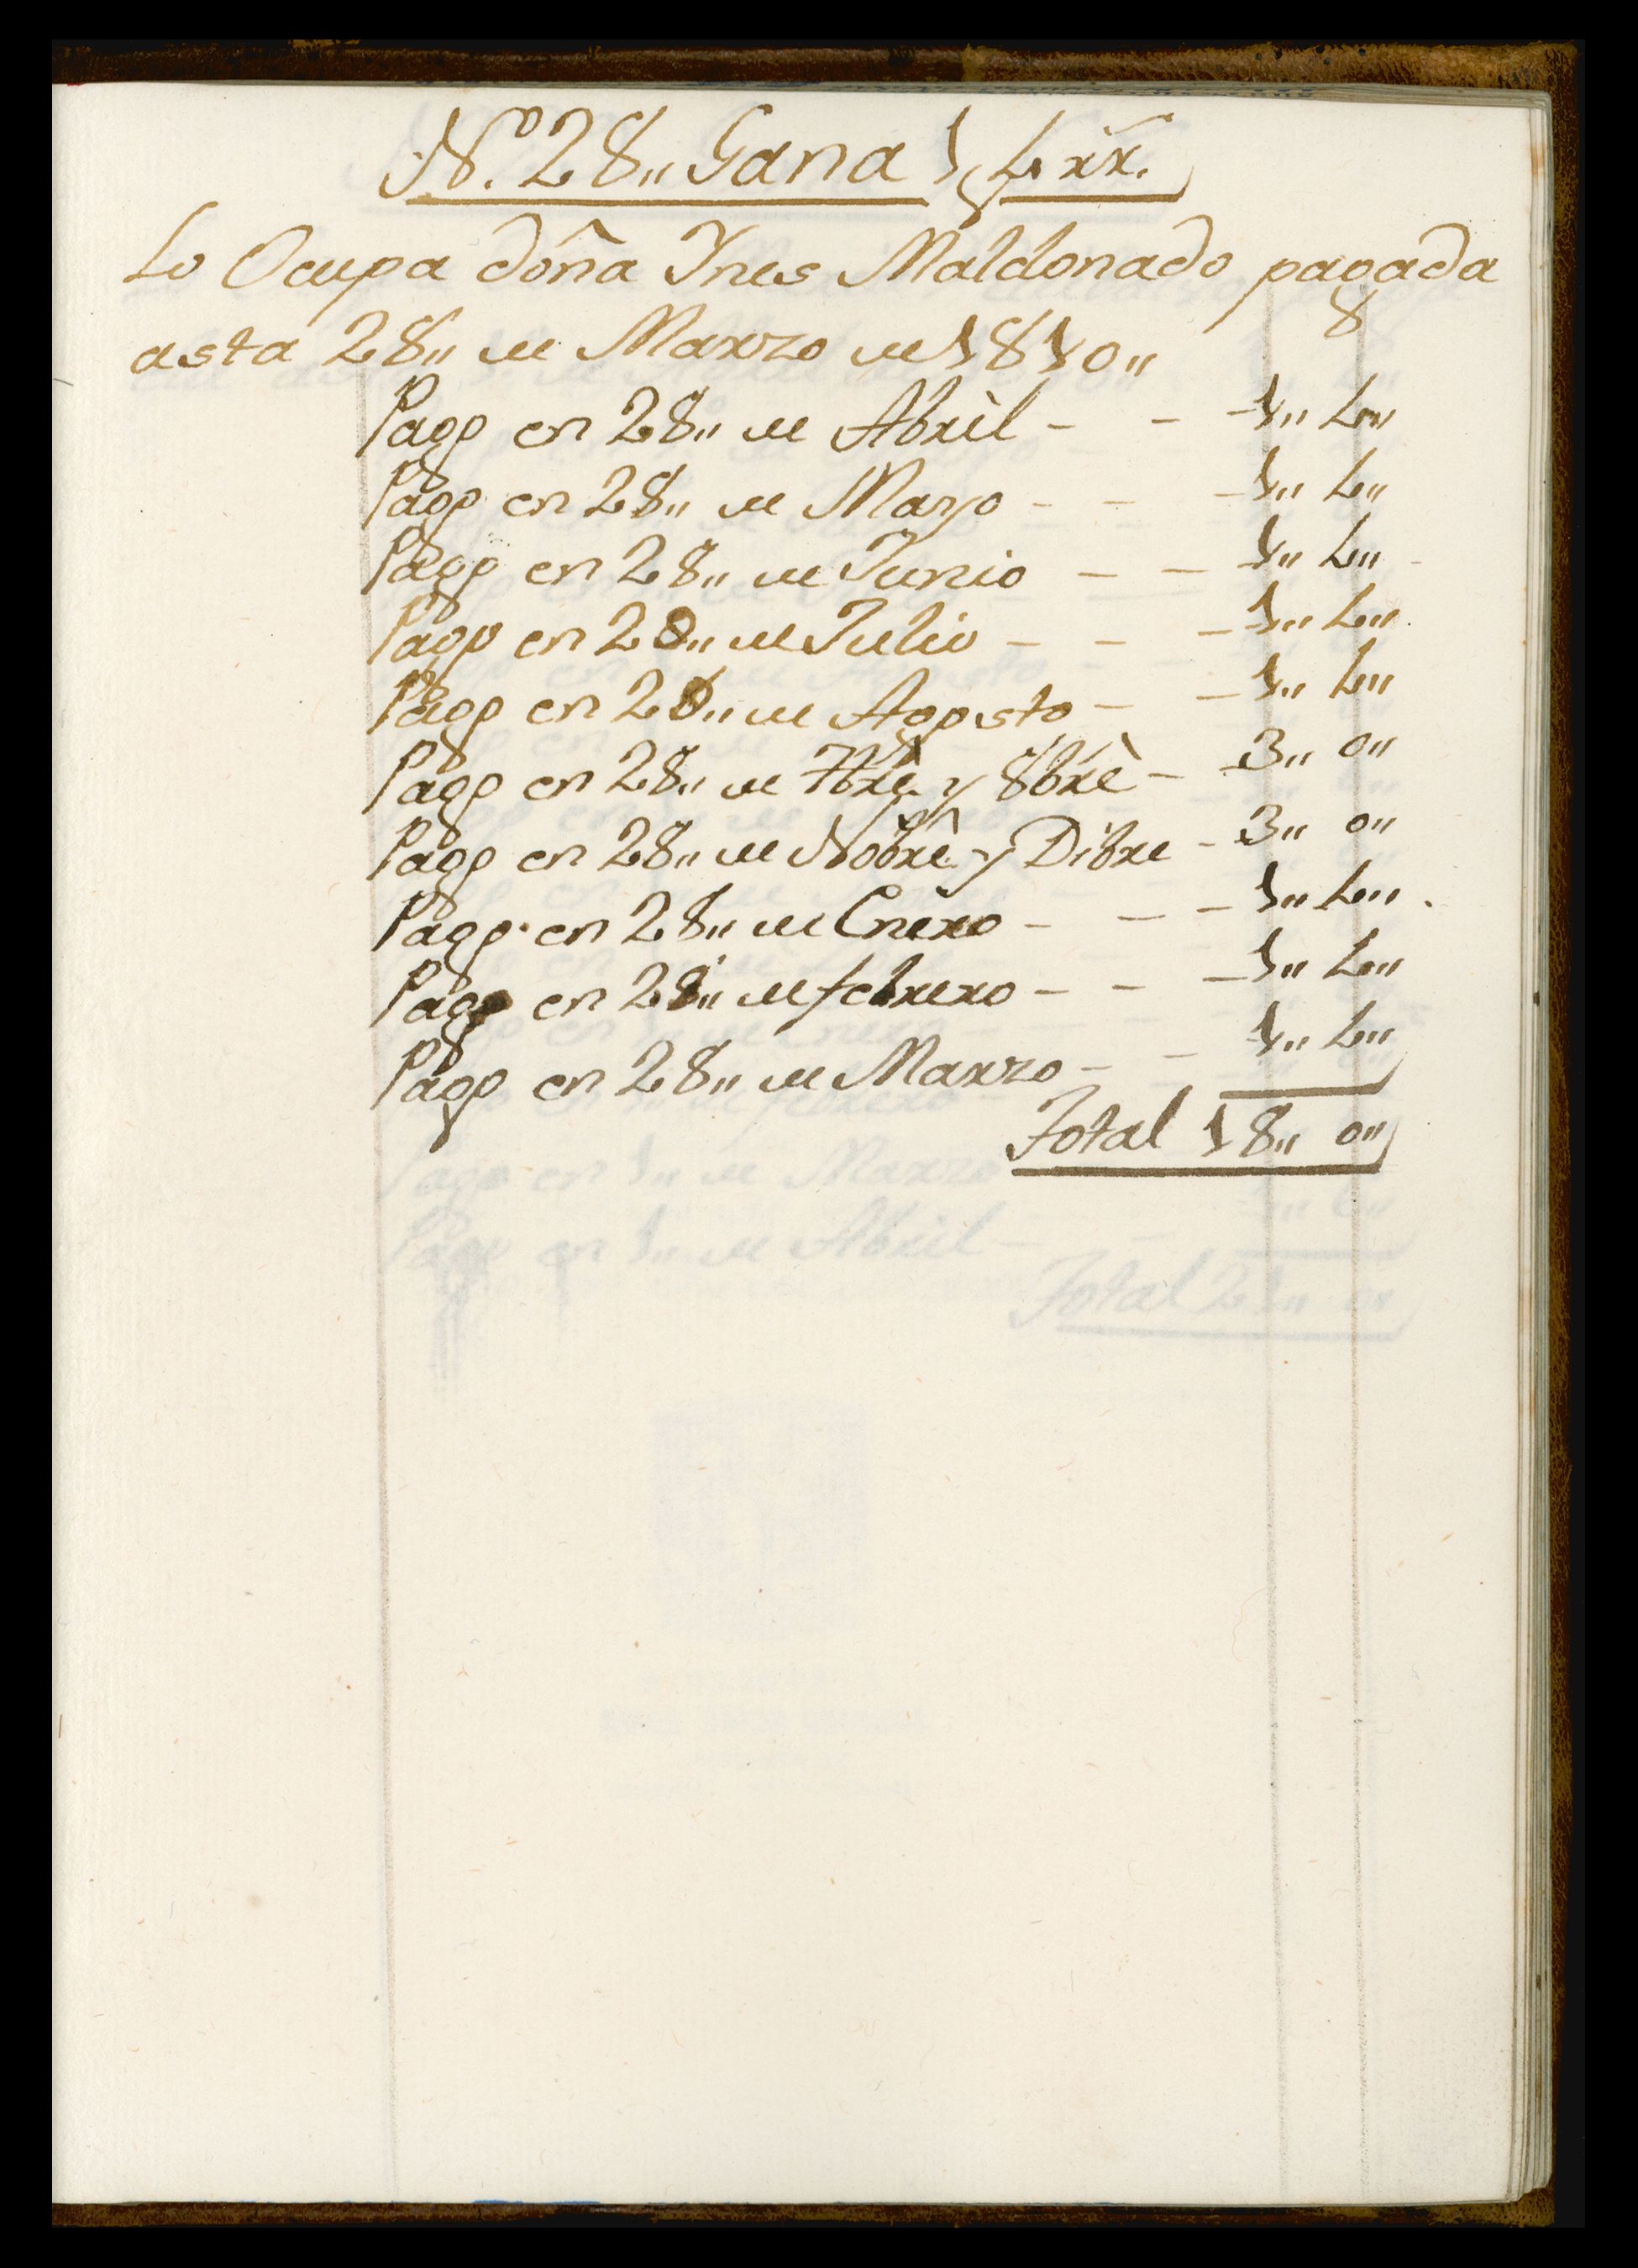 Nº. 28,, Gana 1 p 4 rr̃.
Lo Ocupa doña Ynes Maldonado pagada
asta 28,, de Marzo de 1810,,
Pago en 28,, de Abril - - - 1,, 4,,
Pago en 28,, de Mayo - - - 1,, 4,,
Pago en 28,, de Junio - - - 1,, 4,,
Pago en 28,, de Julio - - - 1,, 4,,
Pago en 28,, de Agosto - - 1,, 4,,
Pago en 28,, de 7brê. y 8brê - 3,, 0,,
Pago en 28,, de Nobrê y Dibre - 3,, 0,,
Pago en 28,, de Enero - - - 1,, 4,,
Pago en 28,, de febrero - - - 1,, 4,,
Pago en 28,, de Marzo - - 1,, 4,,
Total 18,, 0,,